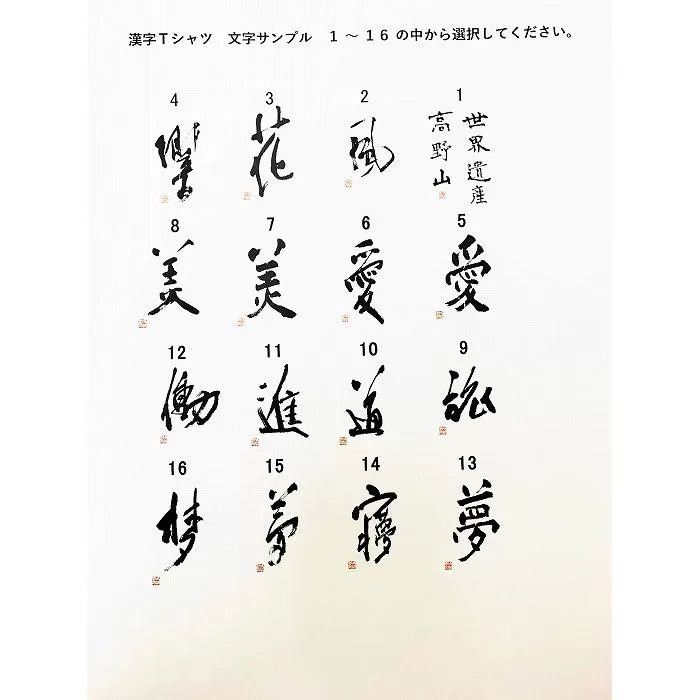 漢字Tシャツ 文字サンプル 1～16の中から選択してください。
1
世界遺産
高野山
2
風
3
花
4
響
5
愛
6
愛
7
美
8
美
9
詣
10
道
11
進
12
働
13
夢
14
15
夢
16
梦